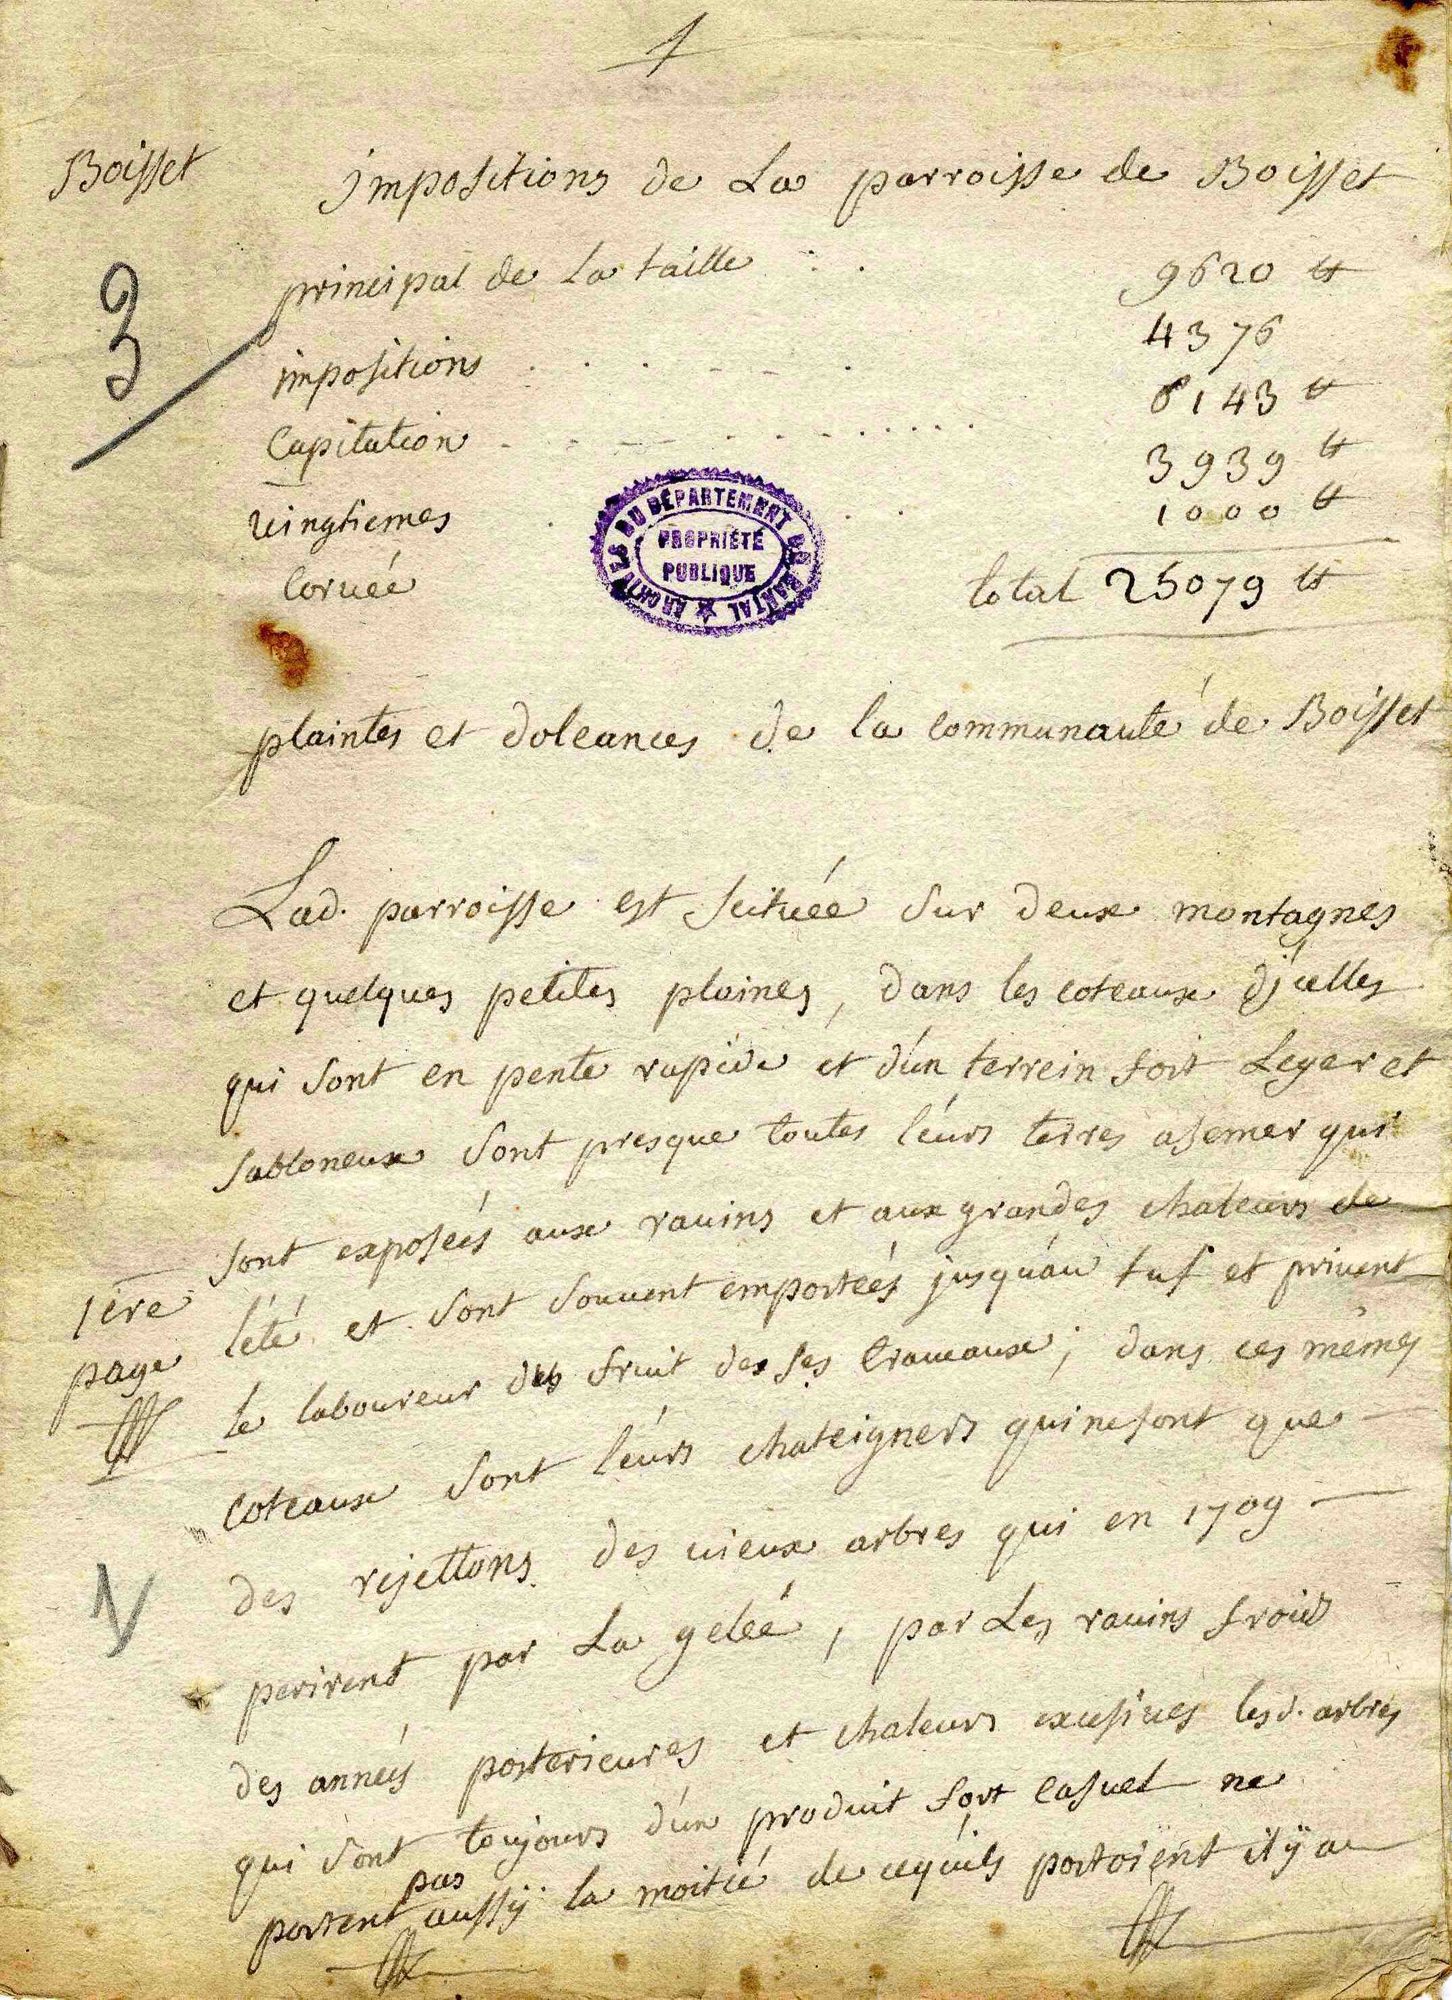 1
Boisset
impositions de La parroisse de Boisset
3
principal de La taille . . . 9620 ₶
impositions . . . . . . 4376
Capitation . . . . . . . . . . . 6143 ₶
vingtiemes . . . . 3939 ₶
Corvéé 1000 ₶
total 25079 ₶
ARCHIVES DU DÉPARTEMENT DU CANTAL
PROPRIÉTÉ
PUBLIQUE
plaintes et doleances de la communauté de Boisset
Lad. parroisse est scituéé sur deux montagnes
et quelques petites plaines, dans les coteaux d'jcelles
qui sont en pente rapide et d'un terrein fort Leger et
sabloneux sont presque toutes léurs terres asemer qui
sont exposeés aux ravins et aux grandes chaleurs de
1ère
l'été et sont souvent emporteés jusquáu tuf et privent
page
le laboureur des fruit des ses travaux; dans ces mêmes
coteaux sont léurs chateigners qui ne sont que
des rejettons des vieux arbres qui en 1709
V
perirent par La geleé, par Les ravins froids
des anneés posterieures et chaleurs excesives lesd. arbres
qui sont toujours d'un produit fort casuel ne
pas
portent aussÿ la moitié de cequ'ils portoient il ÿ a